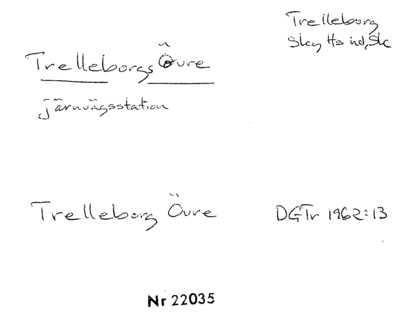 Trelleborgs Övre
järnvägsstation
Trelleborg
Skytts hd, Sk
Trelleborg Övre
DGTr 1962:13
Nr 22035